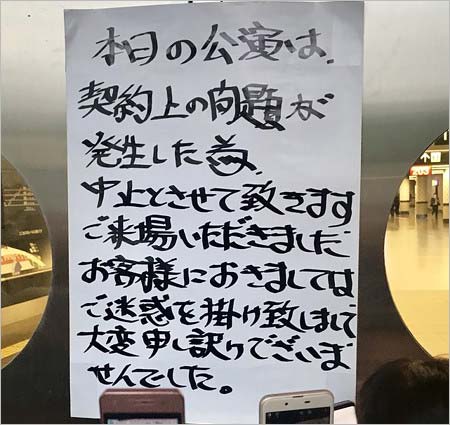 本日の公演は、
契約上の問題が
発生した為、
中止とさせて致きます
ご来場いただきました
お客様におきましては
ご迷惑を掛け致しまして
大変申し訳りでございま
せんでした。
203